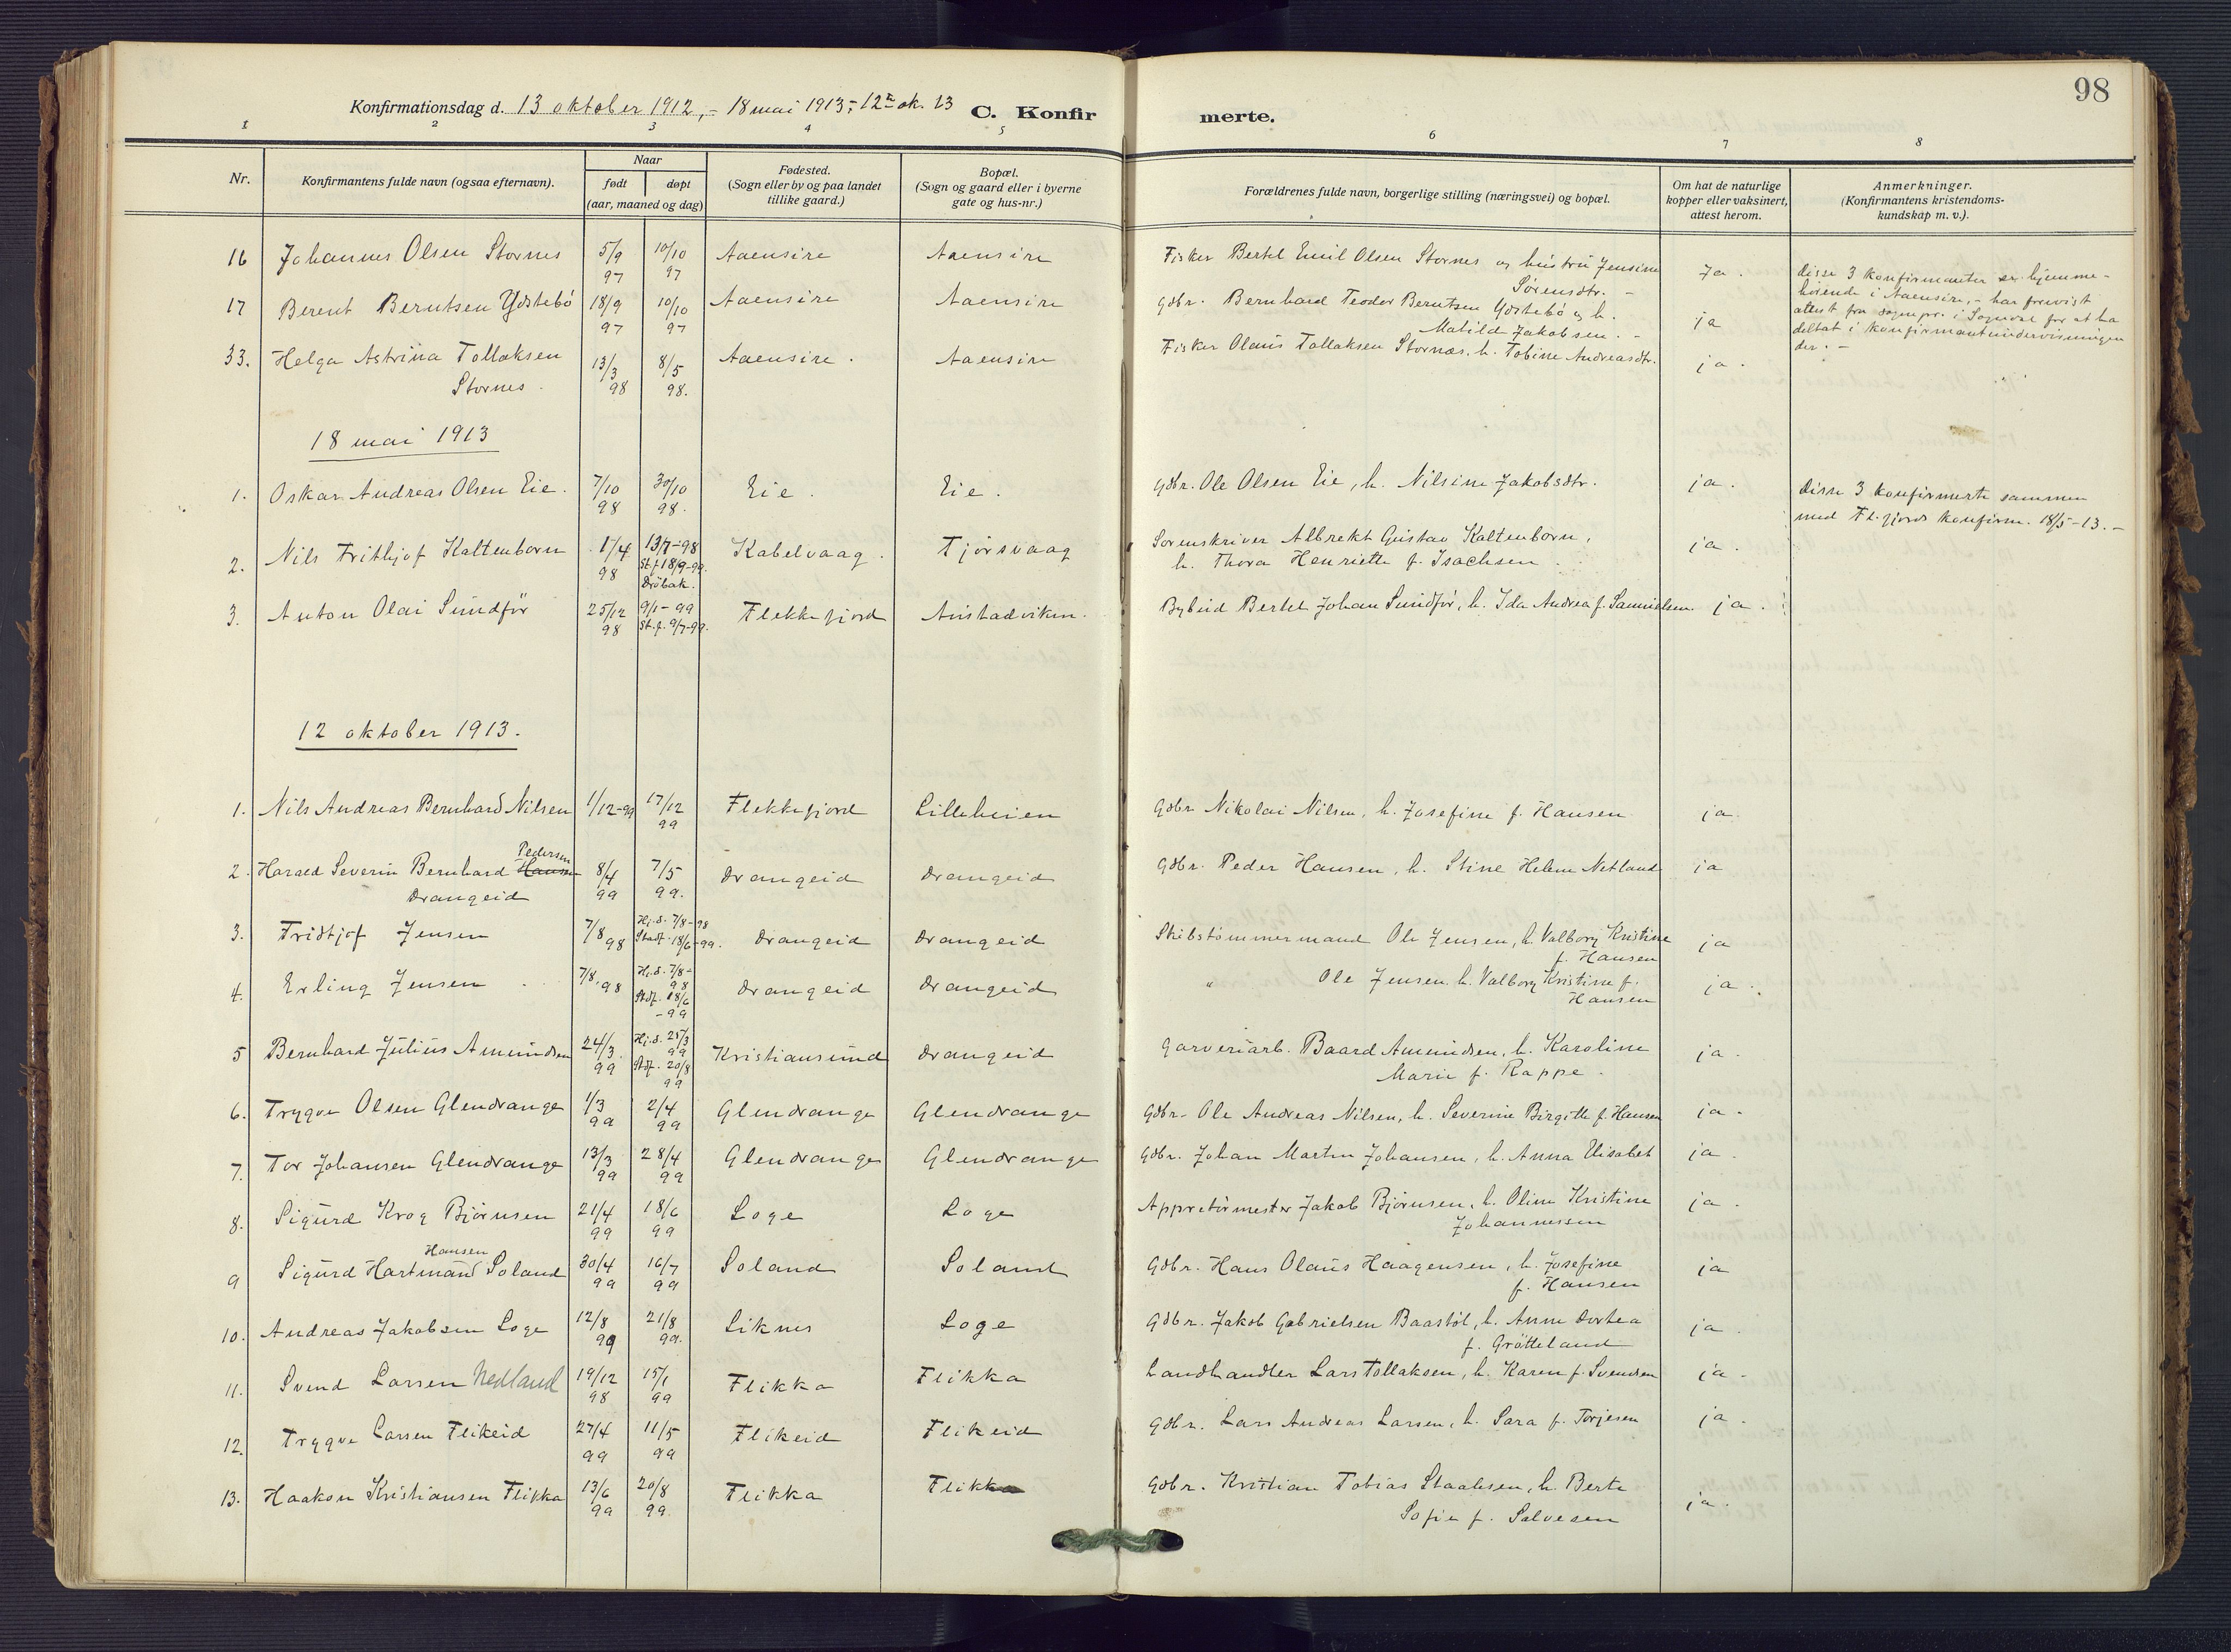 98
Konfirmationsdag d. 13 oktober 1912, - 18 mai 1913; - 12te ok. 13 C. Konfirmerte.
1 2 3 4 5 6 7 8
Nr. Konfirmantens fulde navn (ogsaa efternavn). Naar født døpt (aar, maaned og dag) Fødested. (Sogn eller by og paa landet tillike gaard.) Bopæl. (Sogn og gaard eller i byerne gate og hus-nr.) Forældrenes fulde navn, borgerlige stilling (næringsvei) og bopæl. Om hat de naturlige kopper eller vaksinert, attest herom. Anmerkninger. (Konfirmantens kristendomskundskap m. v.).
16 Johannes Olsen Stornes 5/9 97 10/10 97 Aaensire Aaensire Fisker Bertel Emil Olsen Stornes og hustru Jensine Sørensdtr. - Ja. Disse 3 konfirmanter er hjemme-
hørende i Aaensire, - har forevist
attest fra sogenpr. i Sogndal for at ha
deltat i konfirmantundervisningen
der. -
17 Berent Berntsen Ydstebø 18/9 97 10/10 97 Aaensire Aaensire Gdbr. Bernhard Teodor Berntsen Ydstebø og h. Matilde Jakobsen. - ja
33. Helga Astrina Tollaksen Stornes. 13/3 98 8/5 98. Aaensire. Aaensire Fisker Olaus Tollaksen Stornæs. h. Tobine Andreasdtr. ja.
18 mai 1913
1. Oskar Andreas Olsen Eie. 7/10 98 30/10 98. Eie. Eie. Gdbr. Ole Olsen Eie, h. Nilsine Jakobsdtr. ja. Disse 3 konfirmerte sammen
med Fl.fjords konfirm. 18/5-13. -
2. Nils Frithjof Kaltenborn 1/4 98 13/7-98 St.f. 18/9-99. Drøbak. Kabelvaag. Tjørsvaag Sorenskriver Albrekt Gustav Kaltenborn, h. Thora Henriette f. Isachsen. ja.
3. Anton Olai Sundfør 25/12 98 9/1-99 St.f. 9/7-99. Flekkefjord Anstadviken. Bybud Bertel Johan Sundfør, h. Ida Andrea f. Samuelsen. ja.
12 oktober 1913.
1. Nils Andreas Bernhard Nilsen 1/12-99 17/12 99 Flekkefjord Lilleheien Gdbr Nikolai Nilsen, h. Josefine f. Hansen ja.
2. Harald Severin Bernhard Hansen Pedersen Drangeid 8/4 99 7/5 99. Drangeid Drangeid Gdbr. Peder Hansen, h. Stine Helene Netland ja
3. Fridtjof Jensen 7/8 98 Hj.d. 7/8-98 Stadf. 18/6-99. Drangeid Drangeid Skibstømmermand Ole Jensen, h. Valborg Kristine f. Hansen ja
4. Erling Jensen 7/8. 98 Hj.d. 7/8-98 Stdf. 18/6-99 Drangeid Drangeid " Ole Jensen. h. Valborg Kristine f. Hansen ja.
5 Bernhard Julius Amundsen 24/3. 99 Hj.d. 25/3 99 Stdf. 20/8 99 Kristiansund Drangeid Garveriarb. Baard Amundsen, h. Karoline Marie f. Rappe. ja.
6. Trygve Olsen Glendrange 1/3 99 2/4 99 Glendrange Glendrange Gdbr. Ole Andreas Nilsen, h. Severine Birgitte f. Hansen ja.
7. Tor Johansen Glendrange 13/3 99 28/4 99 Glendrange Glendrange Gdbr. Johan Martin Johansen, h. Anna Elisabet ja.
8. Sigurd Krog Bjørnsen 21/4 99 18/6 99 Loge Loge Appretørmester Jakob Bjørnsen, h. Oline Kristine Johannessen ja.
9 Sigurd Hartmand Hansen Soland 30/4 99 16/7 99 Soland Soland Gdbr. Hans Olaus Haagensen, h. Josefine f. Hansen ja
10. Andreas Jakobsen Loge 12/8 99 21/8 99. Liknes Loge Gdbr. Jakob Gabrielsen Baastøl, h. Anne Dortea f. Grøtteland ja.
11. Svend Larsen Nedland 19/12 98 15/1 99 Flikka Flikka Landhandler Lars Tollaksen, h. Karen f. Svendsen ja.
12. Trygve Larsen Flikeid 27/4 99 11/5 99 Flikeid Flikeid Gdbr. Lars Andreas Larsen, h. Sara f. Torjesen ja.
13. Haakon Kristiansen Flikka 13/6 99 20/8 99 Flikka Flikka Gdbr. Kristian Tobias Staalesen, h. Berte Sofie f. Salvesen ja.